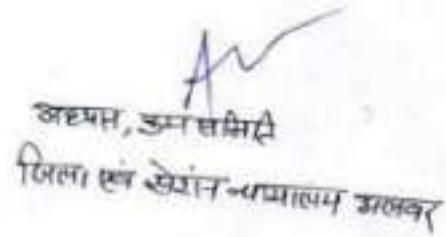 अध्यक्ष, क्रय समिति
जिला एवं सेशन न्यायालय अलवर